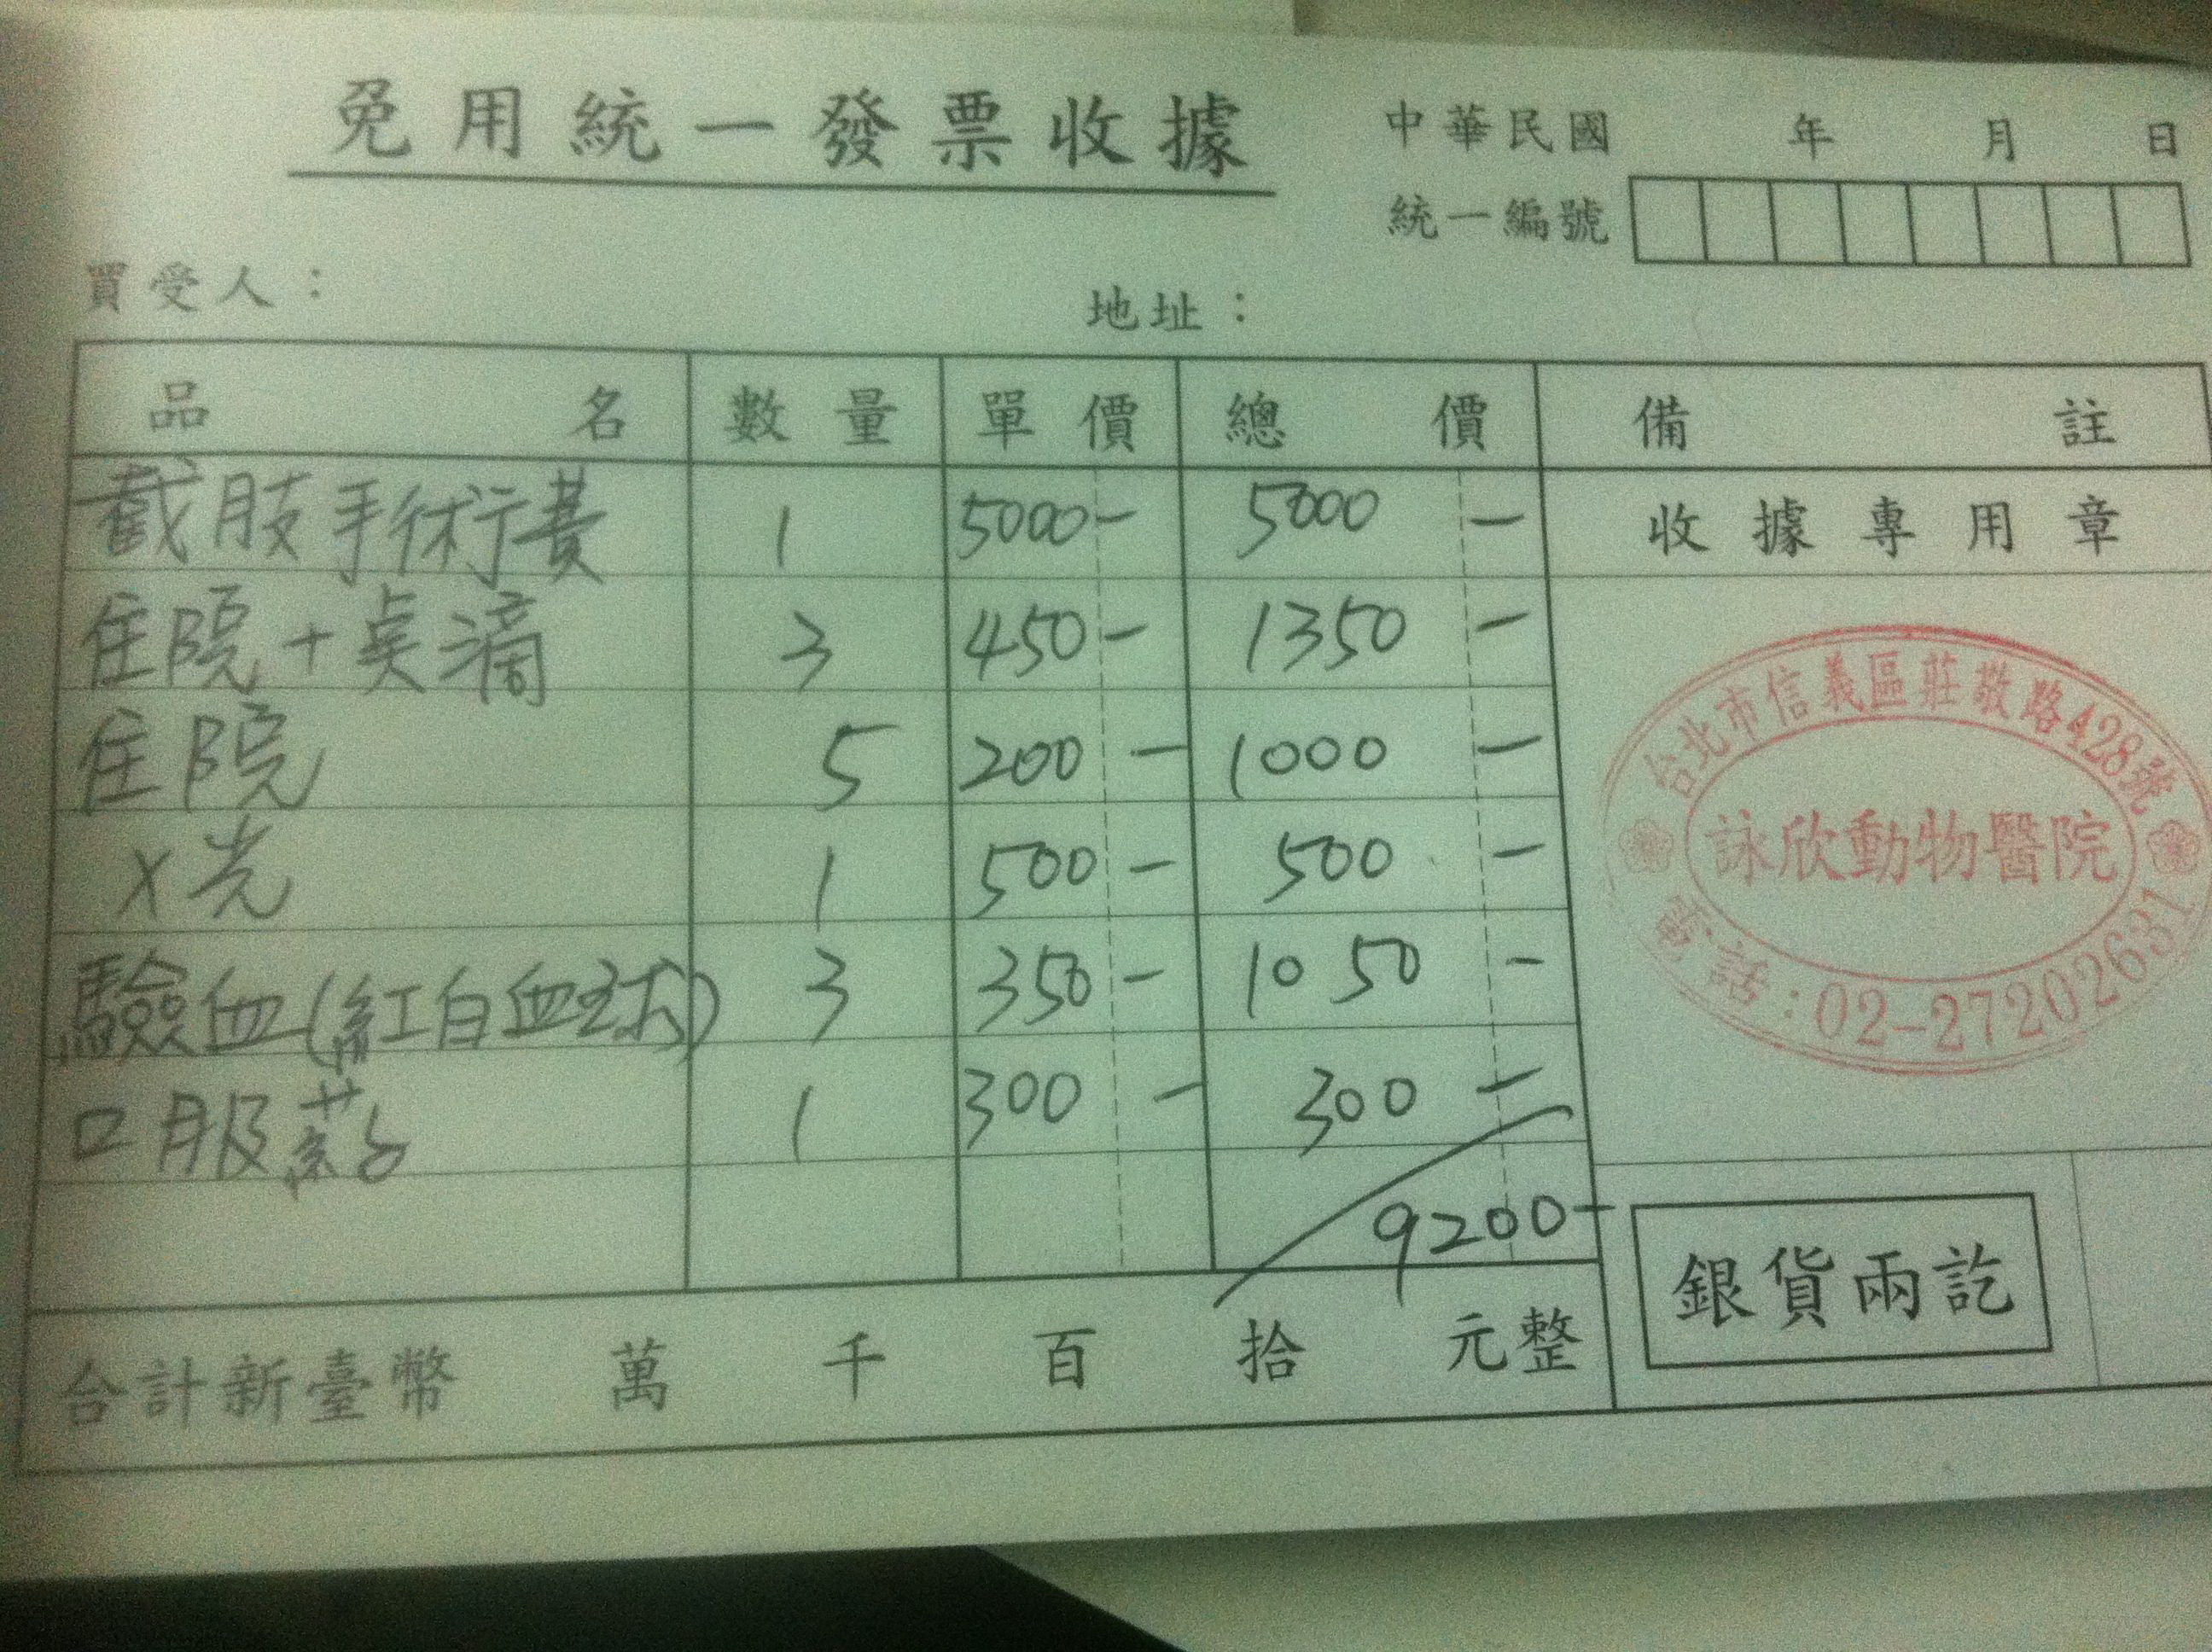 免用統一發票收據
中華民國 年 月 日
統一編號
買受人：
地址：
品名 數量 單價 總價 備註
截肢手術費 1 5000- 5000 -
收據專用章
住院+点滴 3 450- 1350 -
住院 5 200 - 1000 -
X光 1 500- 500 -
驗血(紅白血球) 3 350- 1050 -
口服药 1 300 - 300 -
9200-
台北市信義區莊敬路428號
詠欣動物醫院
電話:02-27202631
銀貨兩訖
合計新臺幣 萬 千 百 拾 元整